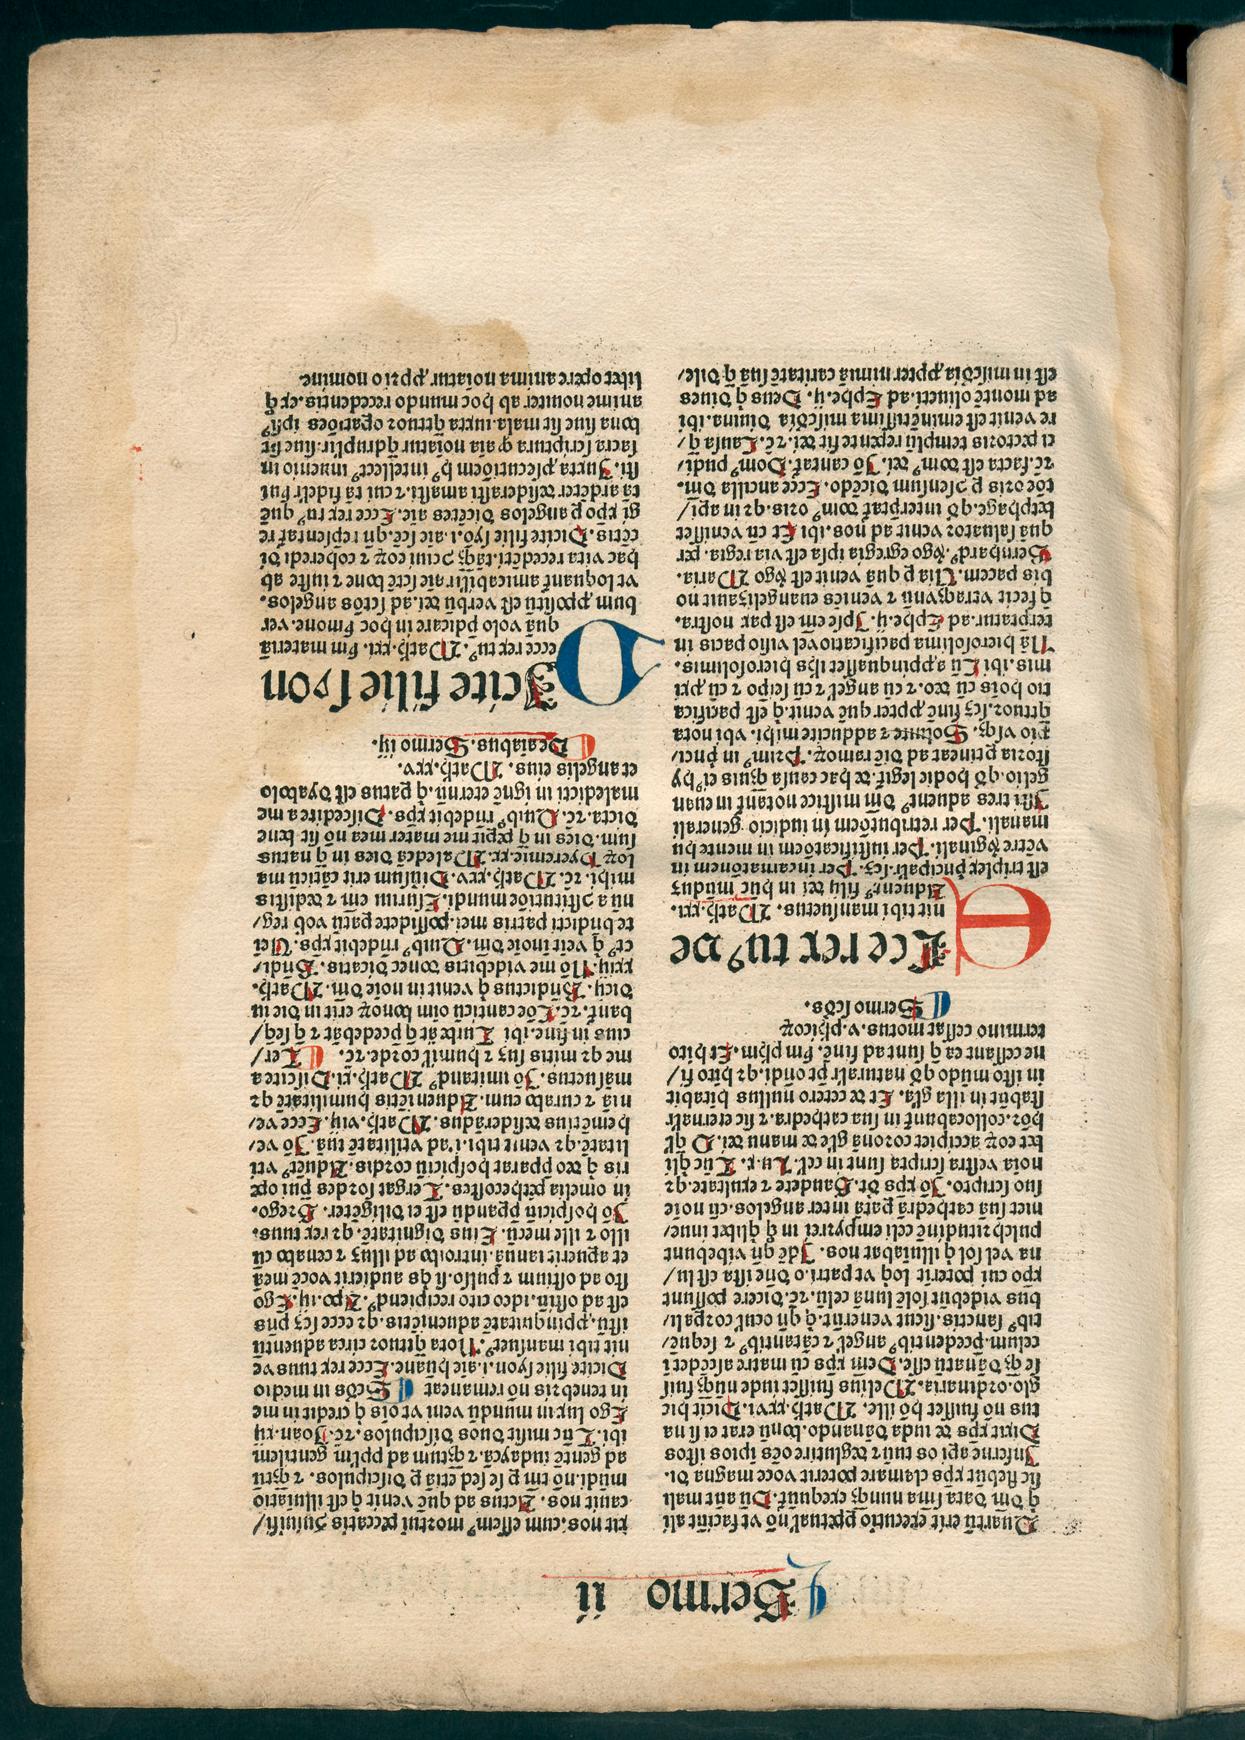 Sermo ii
Quartū erit executio ppetual' nō vt faciūt ali
q dm̄ data s̄nia nunq̄ exequūt᷑. Dū aūt mali
sic stebūt xp̄s clamare poterit voce magna di.
Inferne api os tuū ⁊ deglutire oēs ipsos istos
Dixit xp̄s de iuda dānando. bonū erat ei si na
tus nō fuisset hō ille. Math. xxvi. Dicit hic
glo. ordinaria. Melius fuisset inde nunq̄ fuis
se q̄ dānatū esse. Dem xp̄s cū matre ascēdet ī
celum. precedentib⁹ angel' ⁊ cātantib⁹ ⁊ sequē
tib⁹ sanctis. sicut venerūt. q̄ qn̄ ocul' corpali
bus videbūt solē lunā celū. ⁊c. dicere possunt
xp̄o cui poterit loq̄ vt patri. o dn̄e ista est lu/
na vel sol q̄ illuiabat nos. Idē qn̄ videbunt
pulchritudinē celi empyrei in q̄ q̄libet inue/
niet suā cathedrā patā inter angelos. cū noīe
suo scripto. Iō xp̄s dt. Gaudete ⁊ exultate. qz
noīa vestra scripta sunt in cel'. Lu. x. Tūc q̄li
bet eoꝝ accipiet coronā gl'e de manu dei. D q̄l'
hōꝛ. collocabunt᷑ in sua cathedra. ⁊ sic eternal'r
stabūt in illa gl'a. Et de cetero nullus hitabit
in isto mūdo q̄d naturalr̄ pt ondi. qz hito fi/
ne cessant ea q̄ sunt ad finē. fm̄ ph̄m. Et hito
termino cessat motus. v. ph̄icoꝝ
Sermo scd̄s.
Ecce rex tu⁹ ve
nit tibi mansuetus. Math. xxi.
Aduent⁹ filij dei in hūc mūduȝ
est triplex principalr̄. sc̄ȝ. Per incarnatōem in
vētre v̓ginali. Per iustificatōem in mente hu
manali. Per retributōem in iudicio generali
Isti tres aduent⁹ dn̄i mistice notant᷑ in euan
gelio. q̄d hodie legit᷑. de hac causa q̄uis ei⁹ hy
storia ptineat ad diē ramoꝝ. Prim⁹ in prici/
pio vsq̄. Soluite ⁊ adducite mihi. vbi nota
q̄tuor. sc̄ȝ finē. ppter quē venit. q̄ est pacifica
tio hoīs cū deo. ⁊ cū angel' ⁊ cū seipo ⁊ cū pxi
mis. ibi Cū appinquasset iħs hierosolimis.
Nā hierosolima pacificatio vel visio pacis in
terptatur. ad Ephe. ij. Ipse em̄ est pax nostra.
q̄ fecit vtraq̄ vnū ⁊ veniēs euangelizauit no
bis pacem. Via p quā venit est v̓go Maria.
Bernhard⁹. v̓go egregia ipsa est via regia. per
quā saluator venit ad nos. ibi Et cū venisset
bethphage. q̄d interptat᷑ dom⁹ oris. qz in api/
tōe oris p cōsensum dicēdo. Ecce ancilla dn̄i.
⁊c. facta est dom⁹ dei. Iō cantat᷑. Dom⁹ pudi/
ci pectoris templū repente fit dei. ⁊c. Causa q̄/
re venit est eminētissima misc̄dia diuina. ibi
ad montē oliueti. ad Ephe. ij. Deus q̄ diues
est in misc̄dia ppter nimiā caritatē suā q̄ dile/
xit nos. cum essem⁹ mortui peccatis ꝯuiuifi/
cauit nos. Actus ad quē venit q̄ est illuīatio
mūdi. nō tm̄ p se sed etiā p discipulos. ⁊ q̄stū
ad gentē iudayca. ⁊ q̄stum ad pplm̄ gentilem
ibi. Tūc misit duos discipulos. ⁊c. Joan. xij
Ego lux in mundū veni vt oīs q̄ credit in me
in tenebris nō remaneat Scd̄s in medio
Dicite filie syon. i. aīe huāne. Ecce rex tuus ve
nit tibi mansuet⁹. Nota q̄tuor circa aduentū
istū. ppinquitatē aduenietis. qz ecce sc̄ȝ pn̄s
est ad ostiū. ideo cito recipiend⁹. Apo. iij. Ego
sto ad ostium ⁊ pulso. si q̄s audierit vocē meā
et aperit ianuā. introibo ad illuȝ ⁊ cenabo cū
illo ⁊ ille mecū. Eius dignitatē. qz rex tuus.
Io hospiciū pgandū est ei diligēter. Grego.
in omelia pēthecostes. Tergat sordes pui opꝝ
ris q̄ deo pparat hospiciū cordis. Aduet⁹ vti
litatē. qz venit tibi. i. ad vtilitatē tuā. Iō ve/
hemētius desiderādus. Math. viij. Ecce ve/
niā ⁊ curabo eum. Aduenietis humilitatē qz
māsuetus. Iō imitand⁹ Math. xi. Discite a
me qz mitis suȝ ⁊ humil' corde. ⁊c. Ter/
cius in fine. ibi Turbe aūt q̄ precedebāt ⁊ q̄ seq̄/
banf. ⁊c. Ecce canticū oīm bonoꝝ erit in die iu
dicij. Bn̄dictus q̄ venit in noīe dn̄i. Math.
xxiij. Nō me videbitis donec dicatis. Bn̄di/
ct⁹ q̄ venit in noīe dn̄i. Quib⁹ rn̄debit xp̄s. Uei
te bn̄dicti patris mei. possidete patū vob' reg/
nū a ꝯstitutiōe mundi. Esuriui em̄ ⁊ dedistis
mihi. ⁊c. Math. xxv. Diuisum erit cāticū ma
loꝝ Hyeremie. xx. Maledcā dies in q̄ natus
sum. dies in q̄ pepit me mater mea nō sit bene
dicta. ⁊c. Quib⁹ rn̄debit xp̄s. Discedite a me
maledicti in ignē eternū. q̄ patus est dyabolo
et angelis eius. Math. xxv.
De aīabus. Sermo iij.
Dicite filie syon
ecce rex tu⁹. Math. xxi. fm̄ materiā
quā volo pdicare in hoc s̓mone. ver
bum ppositū est verbū dei. ad scōs angelos.
vt loquant᷑ amicabilr̄ aīe scē bone ⁊ iuste ab
hac vita recedēti. tāq̄ ꝯciui eoꝝ ⁊ coheredi di
cētis. Dicite filie syō. i. aīe scē. qn̄ repsentat᷑ re
gi xp̄o p angelos dicētes aīe. Ecce rex tu⁹ quē
tā ardeter desiderasti amasti. ⁊ cui tā fidelr̄ ser
uisti. Iuxta psecutiōem hui⁹ intellect⁹ inuenio in
sacra scriptura q̄ aīa noīatur q̄drupliciter. siue sit
bona siue sit mala. iuxta q̄tuor opatiōes ipsi⁹
anime nominet̄ ab hoc mundo recedentis. ex q̄
libet opere anima noīatur. pprio nomine